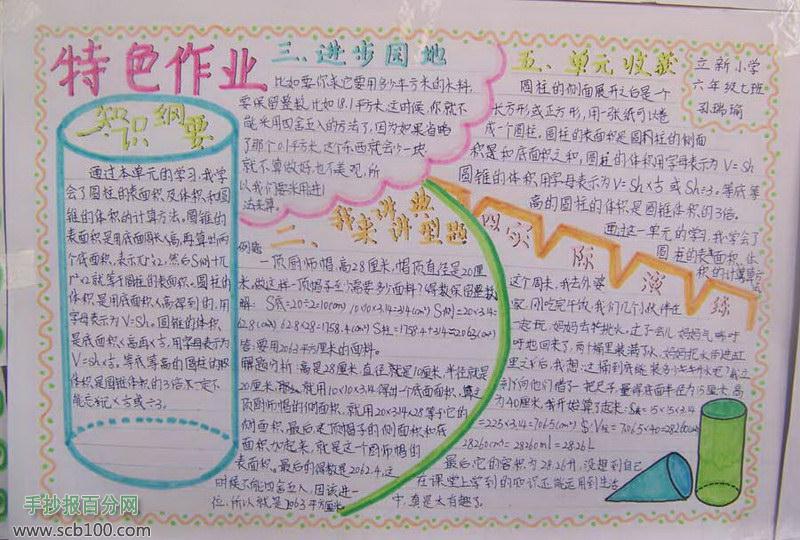 特色作业
知识纲要
通过本单元的学习,我学
会了圆柱的表面积及体积和圆
锥的体积的计算方法。圆锥的
表面积是用底面周长×高,再算出两
个底面积,
就等于圆柱的表面积。圆柱的
体积是用底面积×高得到的,用
字母表示为V=Sh。圆锥的体积
是底面积×高再×⅓,用字母表示为
V=Sh×⅓。等底等高的圆柱的体
积是圆锥体积的3倍,一定不
能忘记×⅓或÷3。
三、进步园地
比如要你求它要用多少平方米的木料,
要保留整数,比如18.1平方米,这时候,你就不
能采用四舍五入的方法了,因为如果省略
了那个0.1平方米,这个东西就会少一块
就不算做好,也不美观,所
以我们要采用进1
法来算。
二、我来讲典型题
例题:
一顶厨师帽,高28厘米,帽顶直径是20厘
米,做这样一顶帽子需要多少面料?得数保留整数
解:S底=20÷2=10(cm) 10×10×3.14=314(cm²) S侧=20×3.14=
62.8(cm) 62.8×28=1758.4(cm²) S柱=1758.4+314≈2063(cm²)
答:要用2063平方厘米的面料。
解题分析:高是28厘米,直径就是10厘米,半径就是
20厘米,那么,就用10×10×3.14得出一个底面面积,算这
顶厨师帽的侧面积,就用20×3.14×28等于它的
侧面积,最后是顶帽子的侧面积和底
面积加起来,就是这个厨师帽的
表面积。最后的得数是2062.4,这
时候不能四舍五入,因该进一
位,所以就是2063平方厘米
五、单元收获
圆柱的侧面展开之后是一个
长方形或正方形,用一张纸可以卷
成一个圆柱,圆柱的表面积是圆柱的侧面
积是和底面积之和,圆柱的体积用字母表示为V=Sh
圆锥的体积用字母表示为V=Sh×⅓或Sh÷3。等底等
高的圆柱的体积是圆锥体积的3倍。
通过这一单元的学习,我学会了
圆柱的表面积、体
积的计算方法
立新小学
六年级七班
孔瑞瑜
四实际演练
这个周末,我去外婆
家,刚吃完午饭,我们几个小伙伴在
一起玩,妈妈去挑水,过了会儿,妈妈气呼呼
地回来了,两个桶里装满了水,妈妈把水倒进缸
里之后,我想:这桶到底能装多少千升水呢?我立
刻向他们借了一把尺子,量得底面半径为15厘米,高
为40厘米,我开始算了起来:S底=15×15×3.14
=225×3.14=706.5(cm²) V=706.5×40=28260cm³
28260cm³=28260ml=28.26L
最后,它的容积为28.26升,没想到自己
在课堂上学到的知识还能运用到生活
中,真是太有趣了。
手抄报百分网
www.scb100.com